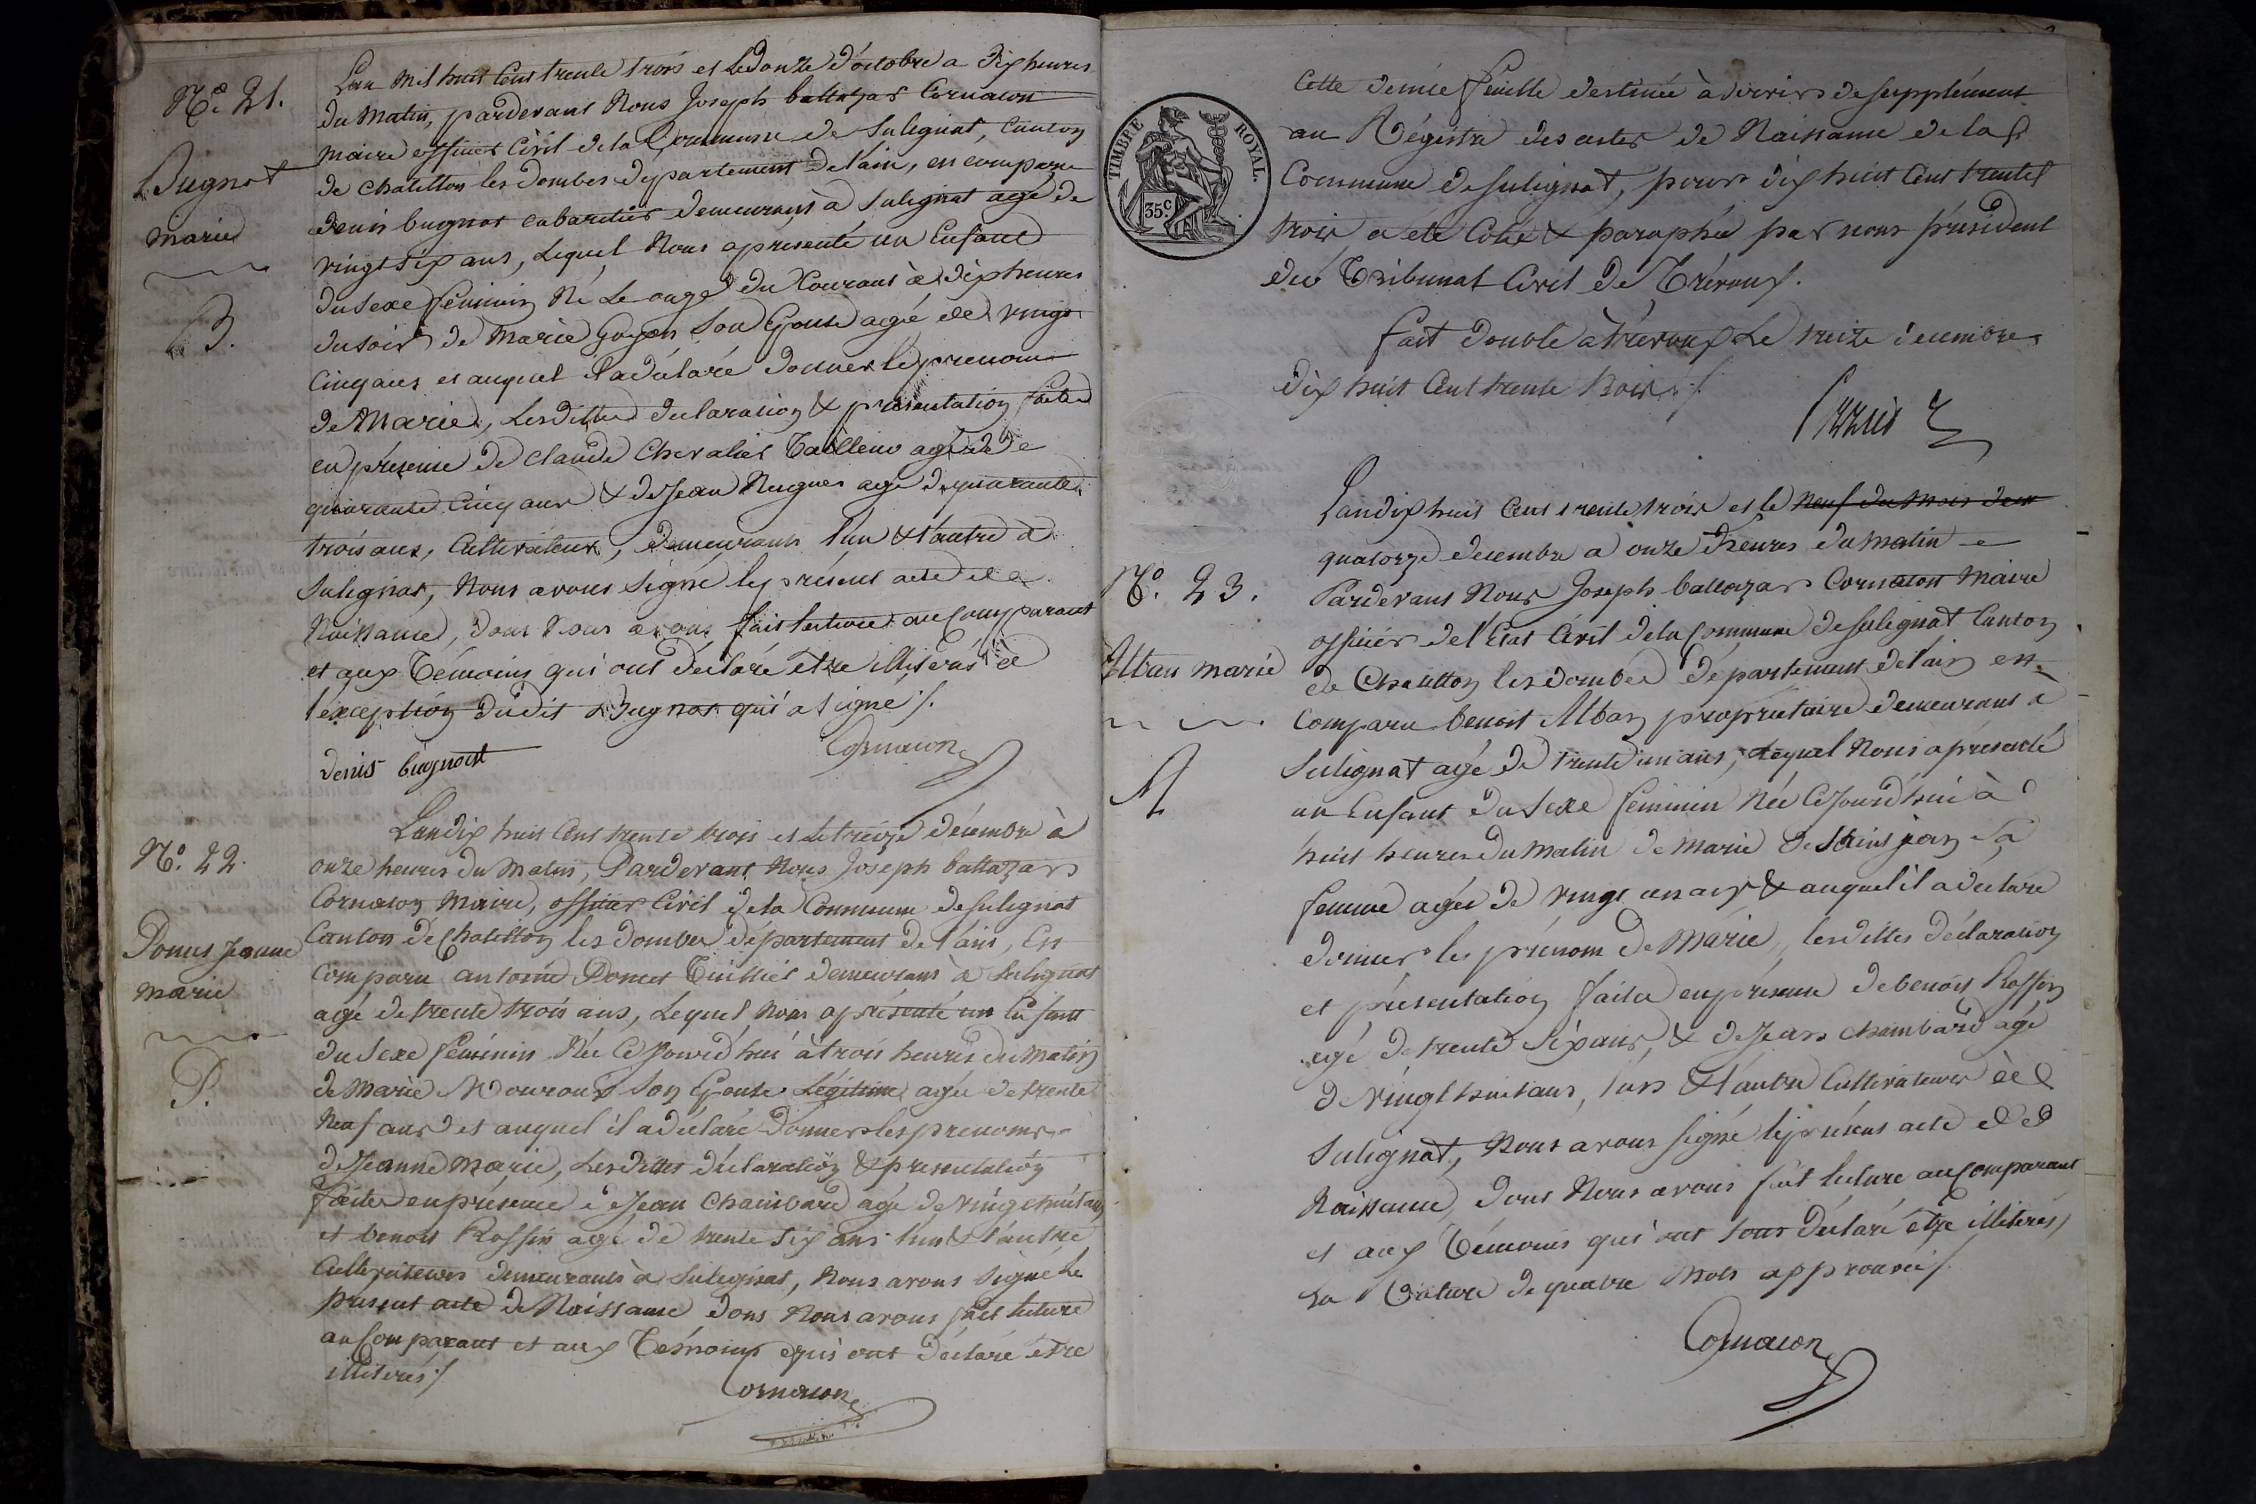 N.º 21.
Bugnot
marie
B.
L'an mil huit Cent trente trois et Le Douze D'octobre a Dix heures
Du Matin, pardevant Nous Joseph baltazar Cornaton
maire officier Civil de la Commune de Sulignat, Canton
de chatillon les dombes département de l'ain, en comparu
denis bugnot cabaretier demeurant à Sulignat agé de
vingt six ans, Lequel Nous a présenté un Enfant
du Sexe féminin Né Le onze du Courant à dix heures
du soir de Marie Guyon Son Epouse agé de vingt
Cinq ans et auquel il a déclaré donner le prenom
de Marie, Les dittes declaration & présentation faites
en présence de claude Chevalier Tailleur agé de
quarante Cinq ans & de Jean Nugues agé de quarante
trois ans, Cultivateur, Demeurants l'un & l'autre à
Sulignat, Nous avons Signé le présent acte de
Naissance, dont Nous avons fait lecture au Comparant
et aux Témoins qui ont déclaré être illiterés à
l'exception dudit Bugnot qui a Signé /.
denis bugnot
Cornaton
N.º 22.
Donet Jeanne
marie
D.
L'an dix huit Cent trente trois et le treize décembre à
onze heures du Matin, Pardevant Nous Joseph baltazar
Cornaton Maire, officier Civil de la Commune de Sulignat
Canton de Chatillon les dombes département de l'ain, En
Comparu antoine Donet Tuillier demeurant à Sulignat
agé de trente trois ans, Lequel Nous a présenté un Enfant
du Sexe féminin Née Ce Jourd'hui à trois heures du Matin
de Marie Mouroux Son Epouse Légitime agée de trente
Neuf ans et auquel il a déclaré Donner les prenoms
de Jeanne Marie, Les dittes declaration & presentation
faites en présence de Jean Chambard agé de vingt huit ans
et benoit Roffin agé de trente Six ans l'un & l'autre
Cultivateurs demeurants à Sulignat, Nous avons Signé Le
présent acte de Naissance dont Nous avons fait lecture
au Comparant et aux Témoins qui ont déclaré être
illiterés /
Cornaton
TIMBRE ROYAL.
35.c
Cette demie feuille destinée à Servir de Supplément
au Régistre des actes de Naissance de la
Commune de Sulignat, pour dix huit Cent trente
trois a été Coté & paraphée par nous président
du Tribunal Civil de Trévoux.
fait double à Trévoux Le treize décembre
dix huit Cent trente trois /.
N.º 23.
Alban Marie
A
L'an dix huit Cent trente trois et le Neuf du Mois de
quatorze decembre à onze heures du Matin
Pardevant Nous Joseph baltazar Cornaton Maire
officier de l'Etat Civil de la Commune de Sulignat Canton
de Chatillon les dombes Département de l'ain en
Comparu benoit Alban propriétaire demeurant à
Sulignat agé De trente un ans, Lequel Nous a présenté
un Enfant du Sexe féminin Née Ce Jourd'hui à
huit heures du Matin de Marie De Saint jean Sa
femme agée de vingt un ans & auquel il a déclaré
donner les prénom de Marie, les dittes déclaration
et présentation faite en présence de benoit Roffin
agé de trente Six ans, & de Jean Chambard agé
de vingt huit ans, l'un & l'autre Cultivateurs à
Sulignat, Nous avons Signé le présent acte de
Naissance, dont Nous avons fait lecture au Comparant
et aux Témoins qui ont tous déclaré être illiterés,
La Rature de quatre Mots approuvé /.
Cornaton